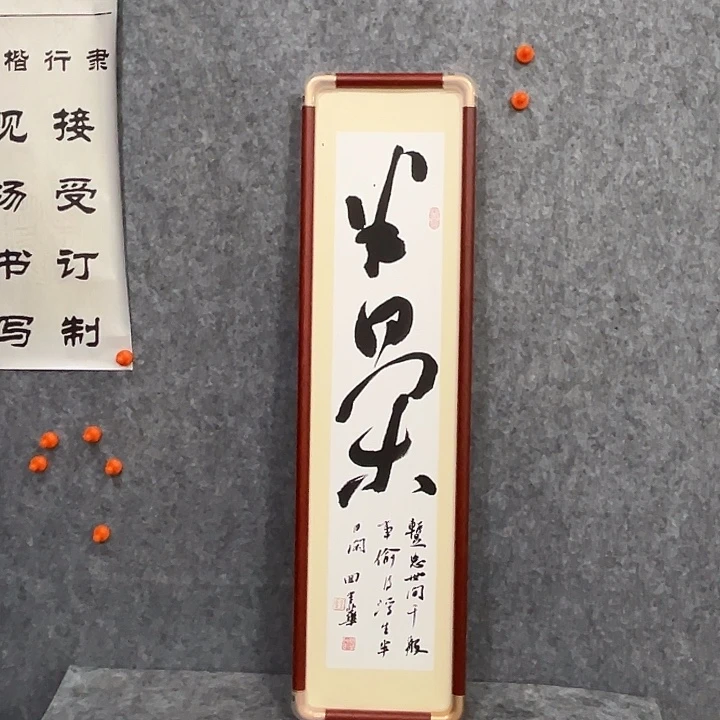 楷行隶
接受订制
现场书写
半日闲
暫忘世间千般
事偷得浮生半
日闲